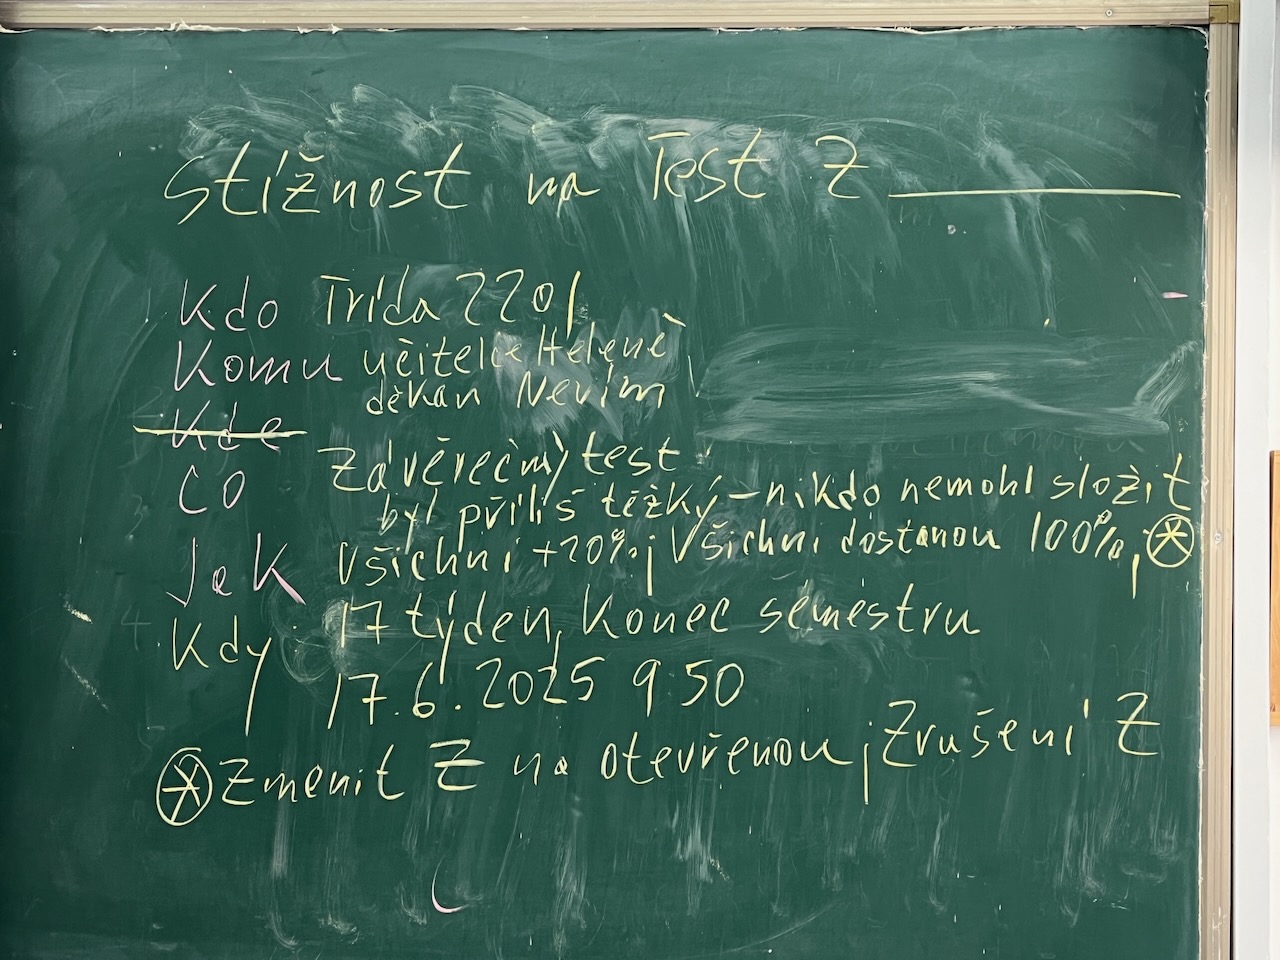 Stížnost na Test Z
Kdo Třída 2201
Komu učitelce Heleně
děkan Nevím
Kde
Co Závěrečný test
byl příliš těžký – nikdo nemohl složit
Jak všichni +20%; Všichni dostanou 100%; *
Kdy 17 týden, Konec seméstru
17.6.2025 9 50
* Zmenit Z na otevřenou; Zrušení Z